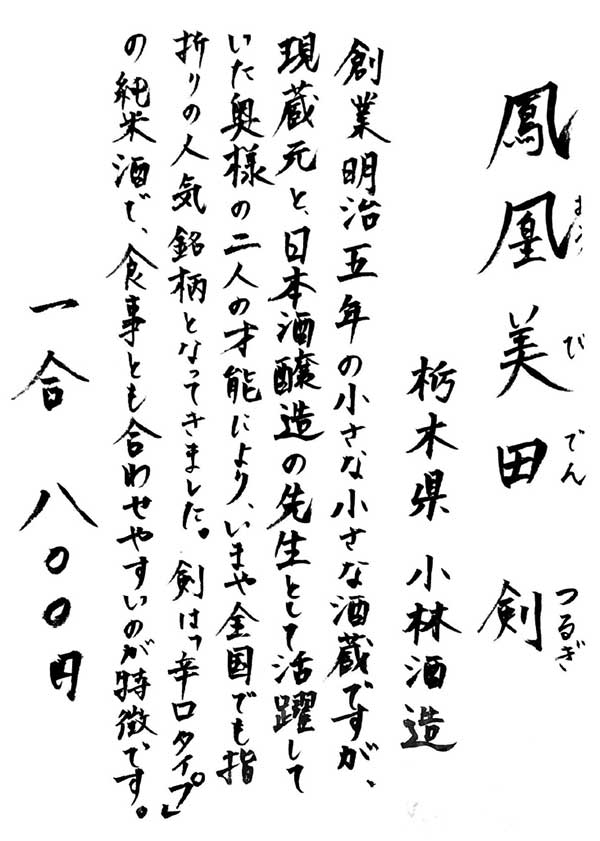 鳳凰美田 剣
ほうおうびでん つるぎ
栃木県 小林酒造
創業明治五年の小さな小さな酒蔵ですが、
現蔵元と、日本酒醸造の先生として活躍して
いた奥様の二人の才能により、いまや全国でも指
折りの人気銘柄となってきました。剣は「辛口タイプ」
の純米酒で、食事とも合わせやすいのが特徴です。
一合 八〇〇円